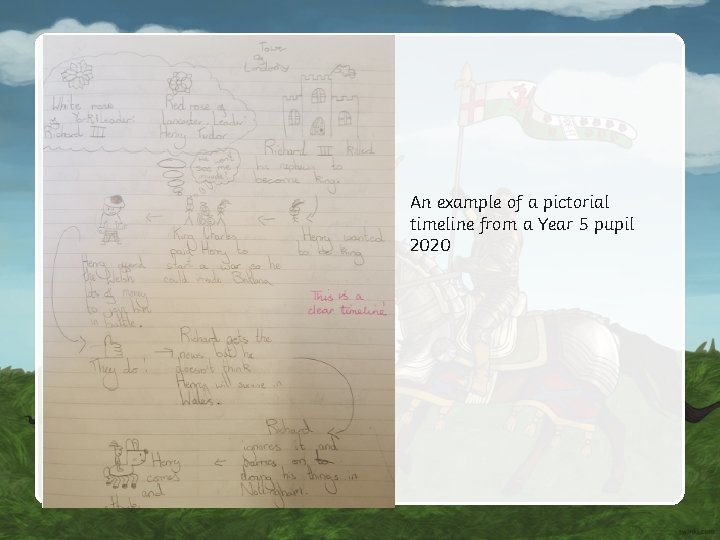 Tower
of
London
White rose
of York Leader:
Richard III
Red rose of
Lancaster, Leader:
Henry Tudor
Richard III killed
his nephews to
become king.
He won't
see me
invade!
King Charles
paid Henry to
start a war so he
could invade Britain
Henry wanted
to be King
Henry offered
the Welsh
lots of money
to join him
in battle.
This is a
clear timeline
They do!
Richard gets the
news but he
doesn't think
Henry will survive in
Wales.
Richard
ignores it and
carries on to
doing his things in
Nottingham.
Henry
comes
and
An example of a pictorial
timeline from a Year 5 pupil
2020